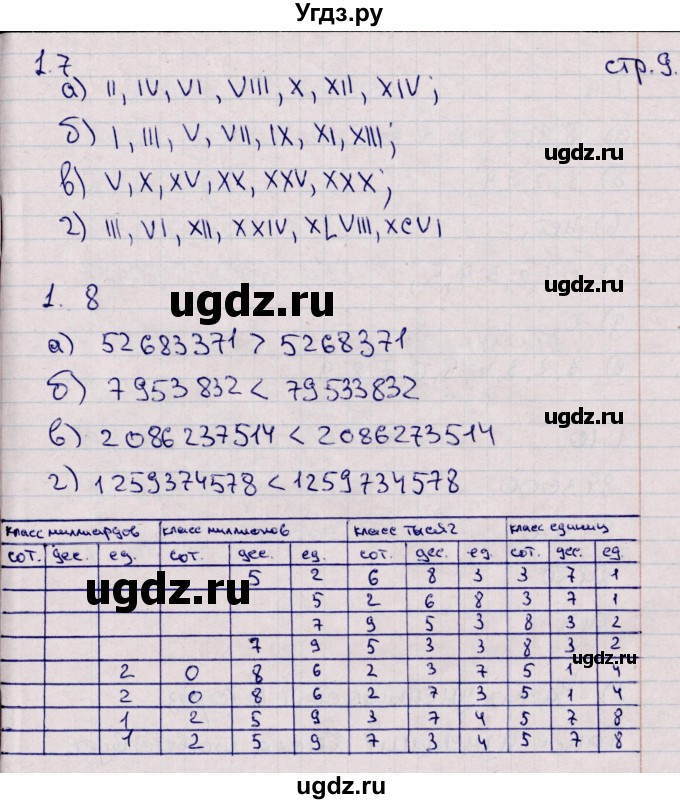 Угдз.ру
1.7
стр.9.
а) II, IV, VI, VIII, X, XII, XIV;
б) I, III, V, VII, IX, XI, XIII;
ugdz.ru
в) V, X, XV, XX, XXV, XXX;
г) III, VI, XII, XXIV, XLVIII, XCVI
1. 8
ugdz.ru
ugdz.ru
а) 52683371 > 5268371
б) 7953832 < 79533832
ugdz.ru
в) 2086237514 < 2086273514
г) 1259374578 < 1259734578
класс миллиардов класс миллионов класс тысяч класс единиц
сот. дес. ед. сот. дес. ед. сот. дес. ед. сот. дес. ед.
5 2 6 8 3 3 7 1
ugdz.ru
ugdz.ru
5 2 6 8 3 7 1
7 9 5 3 8 3 2
7 9 5 3 3 8 3 2
2 0 8 6 2 3 7 5 1 4
2 0 8 6 2 7 3 5 1 4
1 2 5 9 3 7 4 5 7 8
1 2 5 9 7 3 4 5 7 8
ugdz.ru